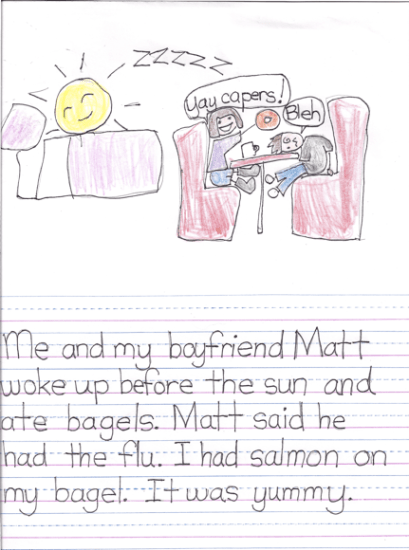 ZZZZZ
Yay capers!
Bleh
Me and my boyfriend Matt
woke up before the sun and
ate bagels. Matt said he
had the flu. I had salmon on
my bagel. It was yummy.